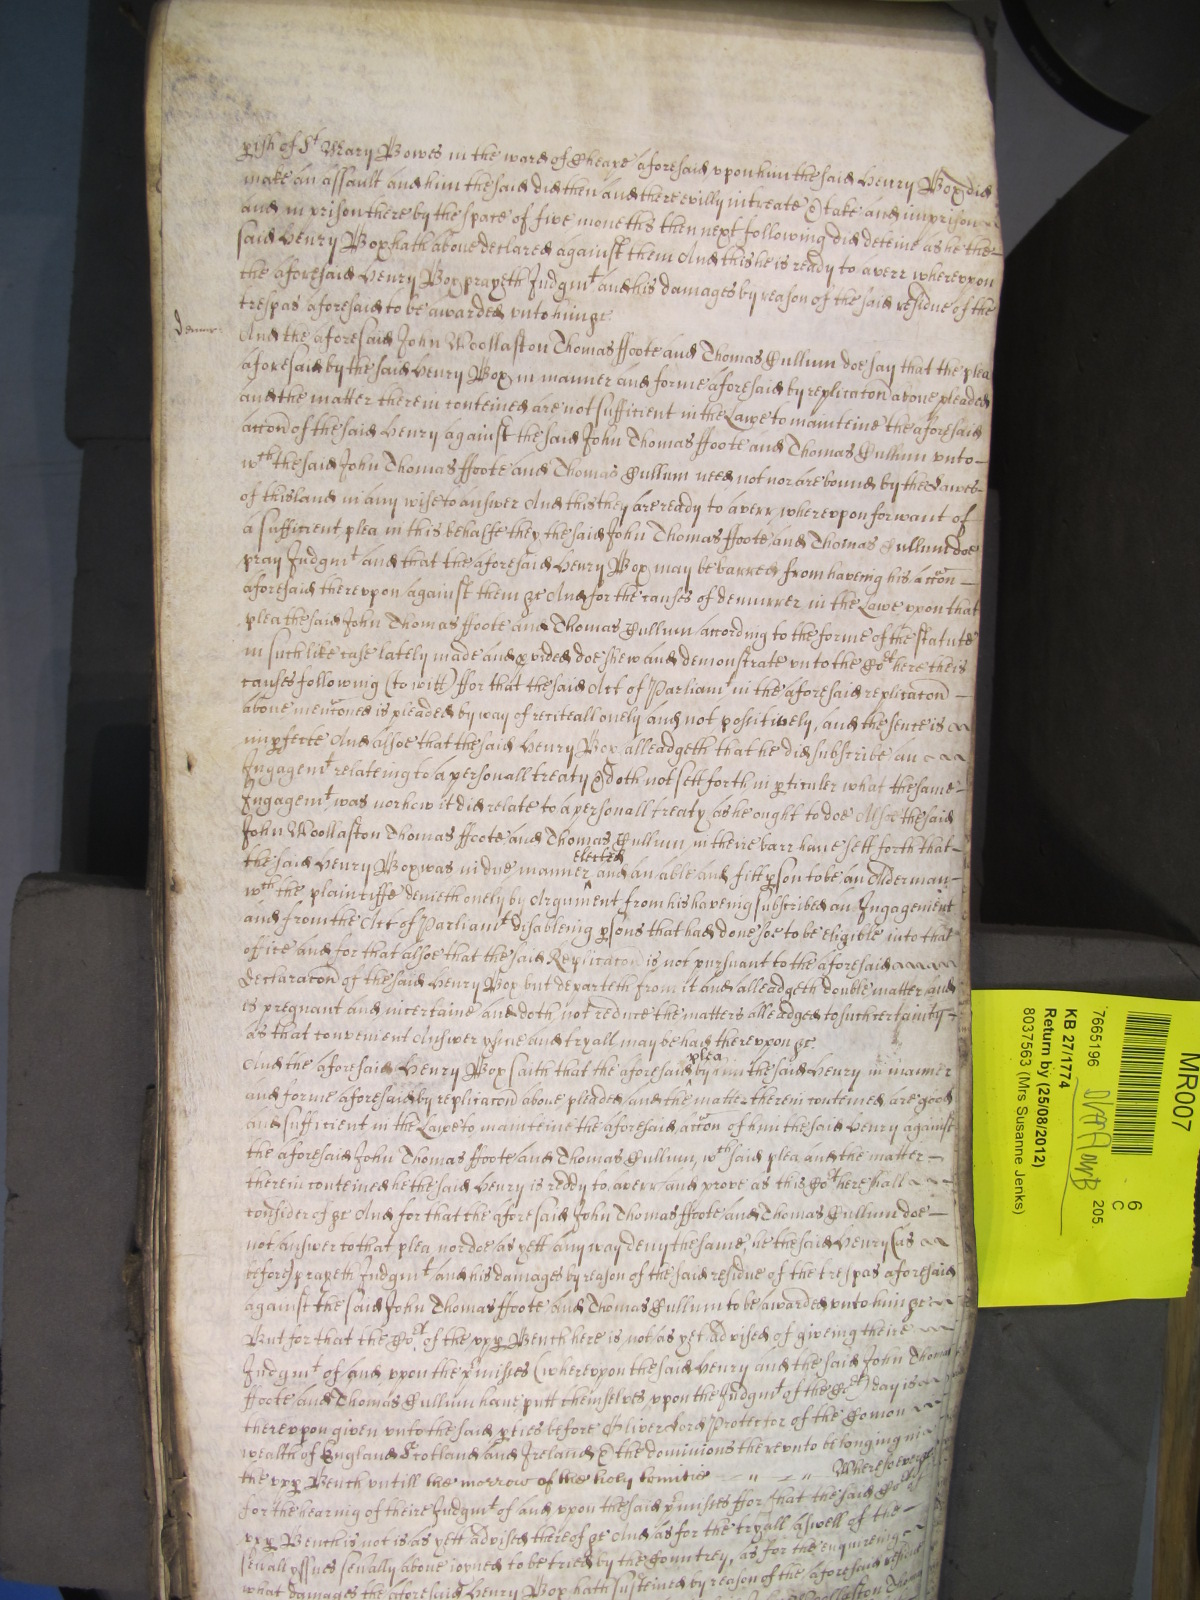 pish of St Mary Bowes in the ward of Cheape aforesaid vpon him the said Henry Box did
make an assault and him the said did then and there evilly intreate & take and imprison
and in prison there by the space of five moneths then next following did deteine as he the
said Henry Box hath above declared against them And this he is ready to averr wherevpon
the aforesaid Henry Box prayeth Judgmt and his damages by reason of the said residue of the
trespas aforesaid to be awarded vnto him &c
demur
And the aforesaid John Woollaston Thomas ffoote and Thomas Cullum doe say that the plea
aforesaid by the said Henry Box in manner and forme aforesaid by replicacon above pleaded
and the matter therein conteined are not sufficient in the Lawe to mainteine the aforesaid
accon of the said Henry against the said John Thomas ffoote and Thomas Cullum vnto
wth the said John Thomas ffoote and Thomas Cullum need not nor are bound by the Lawes
of this land in any wise to answer And this they are ready to averr wherevpon for want of
a sufficient plea in this behalfe they the said John Thomas ffoote and Thomas Cullum doe
pray Judgmt and that the aforesaid Henry Box may be barred from haveing his accon
aforesaid therevpon against them &c And for the causes of demurrer in the Lawe vpon that
plea the said John Thomas ffoote and Thomas Cullum according to the forme of the statute
in such like case lately made and pvided doe shew and demonstrate vnto the Cot here theis
causes following (to witt) ffor that the said Act of Parliamt in the aforesaid replicacon
above menconed is pleaded by way of recitall onely and not positively, and the sence is
imperfecte And alsoe that the said Henry Box alleadgeth that he did subscribe an
Ingagemt relateing to a personall treaty & doth not sett forth in pticuler what the same
Ingagemt was nor how it did relate to a personall treaty as he ought to doe Alsoe the said
John Woollaston Thomas ffoote and Thomas Cullum in theire barr have sett forth that
the said Henry Box was in due manner elected and an able and fitt pson to be an Alderman
wth the plaintiffe denieth onely by Argument from his haveing subscribed an Ingagement
and from the Act of Parliamt disableing psons that had done soe to be eligible into that
office and for that alsoe that the said Replicacon is not pursuant to the aforesaid
declaracon of the said Henry Box but departeth from it and alleadgeth double matter and
is pregnant and incertaine and doth not reduce the matters alleadged to such certainty
as that convenient Answer yssue and tryall may be had therevpon &c
And the aforesaid Henry Box saith that the aforesaid plea by him the said Henry in manner
and forme aforesaid by replicacon above pleaded and the matter therein conteined are good
and sufficient in the Lawe to mainteine the aforesaid accon of him the said Henry against
the aforesaid John Thomas ffoote and Thomas Cullum, wth said plea and the matter
therein conteined he the said Henry is ready to averr and prove as this Cot here shall
consider of &c And for that the aforesaid John Thomas ffoote and Thomas Cullum doe
not answer to that plea nor doe as yett any way deny the same, he the said Henry (as
before) prayeth Judgmt and his damages by reason of the said residue of the trespas aforesaid
against the said John Thomas ffoote and Thomas Cullum to be awarded vnto him &c
But for that the Cot of the vpp Bench here is not as yet advised of giveing theire
Judgmt of and vpon the pmisses (wherevpon the said Henry and the said John Thomas
ffoote and Thomas Cullum have putt themselves vpon the Judgmt of the Cot) day is
therevpon given vnto the said pties before Oliver Lord Protector of the Comon
wealth of England Scotland and Ireland & the dominions therevnto belonging in
the vpp Bench vntill the morrow of the holy trinitie Wheresoever
for the hearing of theire Judgmt of and vpon the said pmisses ffor that the said Cot of
vpp Bench is not is as yett advised thereof &c And as for the tryall aswell of the
sevall yssues sevally above ioyned to be tried by the Countrey, as for the enquireing
what damages the aforesaid Henry Box hath susteined by reason of the aforesaid residue
MR007
6
C
205.
7665196
KB 27/1774
Return by (25/08/2012)
8037563 (Mrs Susanne Jenks)